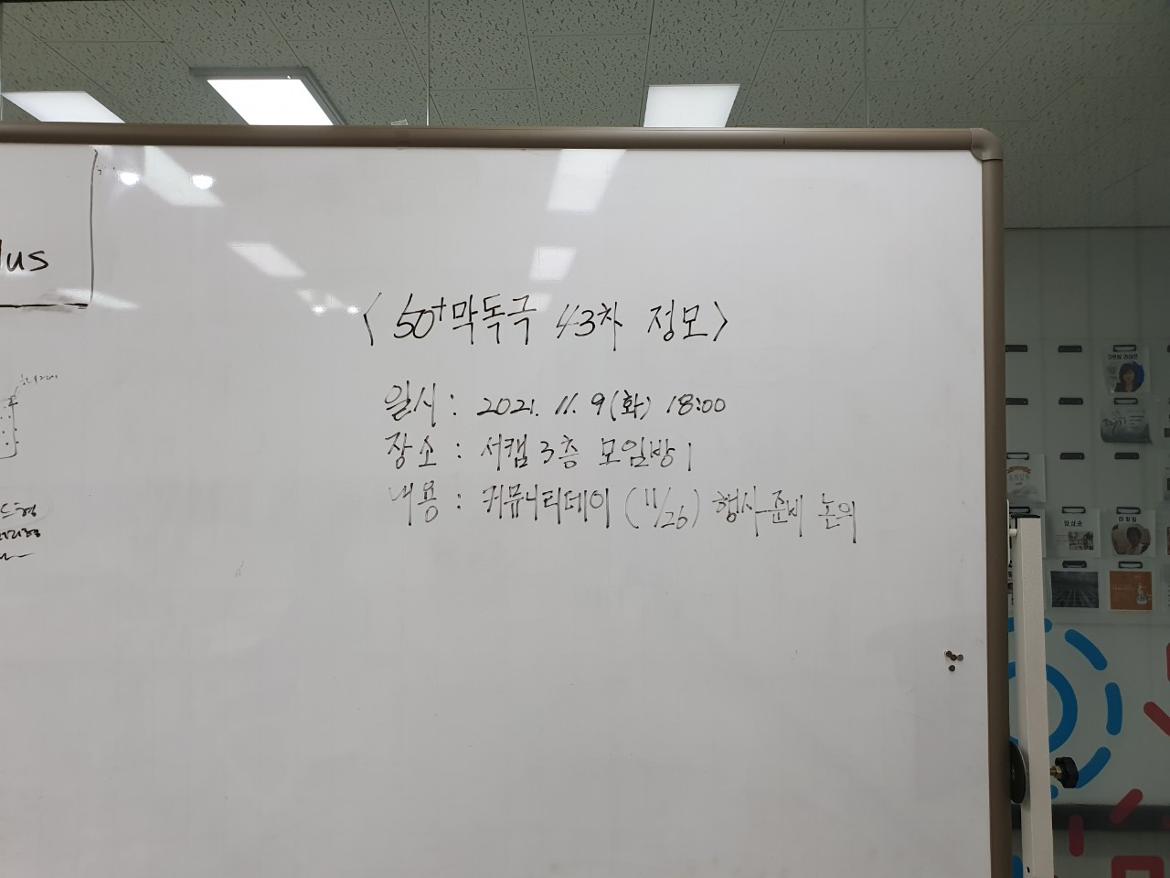 lus
<50+막독극 43차 정모>
일시 : 2021. 11. 9(화) 18:00
장소 : 서캠 3층 모임방 1
내용 : 커뮤니티데이 (11/26) 행사준비 논의